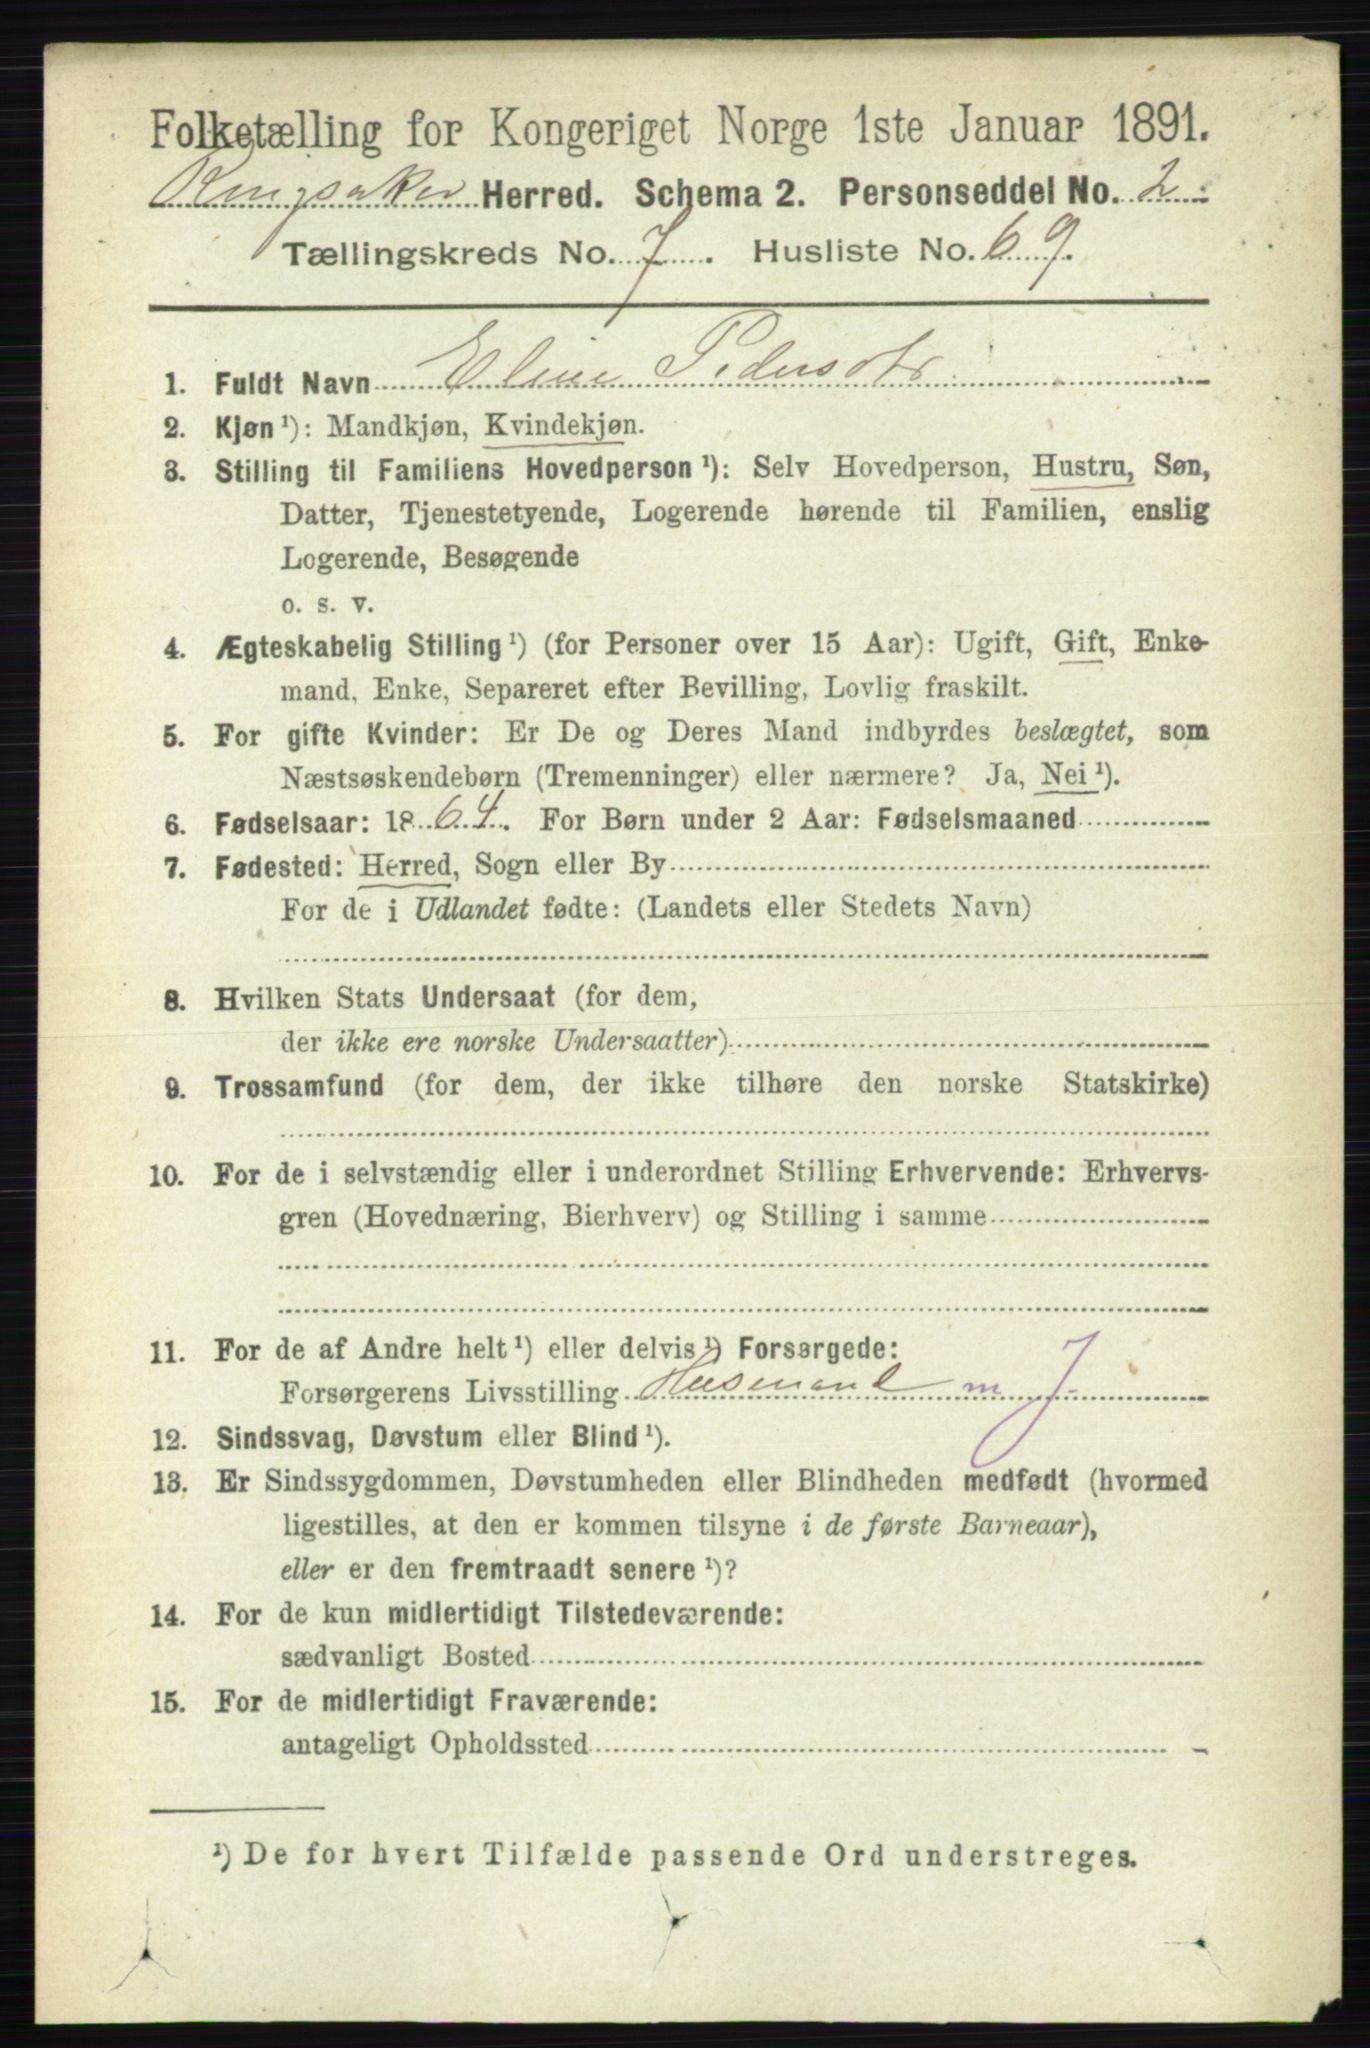 Folketælling for Kongeriget Norge 1ste Januar 1891.
Ringsaker Herred. Schema 2. Personseddel No. 2.
Tællingskreds No. 7. Husliste No. 69.
1. Fuldt Navn Eline Pedersdtr
2. Kjøn ¹): Mandkjøn, Kvindekjøn.
3. Stilling til Familiens Hovedperson ¹): Selv Hovedperson, Hustru, Søn,
Datter, Tjenestetyende, Logerende hørende til Familien, enslig
Logerende, Besøgende
o. s. v.
4. Ægteskabelig Stilling ¹) (for Personer over 15 Aar): Ugift, Gift, Enke-
mand, Enke, Separeret efter Bevilling, Lovlig fraskilt.
5. For gifte Kvinder: Er De og Deres Mand indbyrdes beslægtet, som
Næstsøskendebørn (Tremenninger) eller nærmere? Ja, Nei ¹).
6. Fødselsaar: 1864. For Børn under 2 Aar: Fødselsmaaned
7. Fødested: Herred, Sogn eller By
For de i Udlandet fødte: (Landets eller Stedets Navn)
8. Hvilken Stats Undersaat (for dem,
der ikke ere norske Undersaatter)
9. Trossamfund (for dem, der ikke tilhøre den norske Statskirke)
10. For de i selvstændig eller i underordnet Stilling Erhvervende: Erhvervs-
gren (Hovednæring, Bierhverv) og Stilling i samme
11. For de af Andre helt ¹) eller delvis ¹) Forsørgede:
Forsørgerens Livsstilling Husmand m J.
12. Sindssvag, Døvstum eller Blind ¹).
13. Er Sindssygdommen, Døvstumheden eller Blindheden medfødt (hvormed
ligestilles, at den er kommen tilsyne i de første Barneaar),
eller er den fremtraadt senere ¹)?
14. For de kun midlertidigt Tilstedeværende:
sædvanligt Bosted
15. For de midlertidigt Fraværende:
antageligt Opholdssted
¹) De for hvert Tilfælde passende Ord understreges.